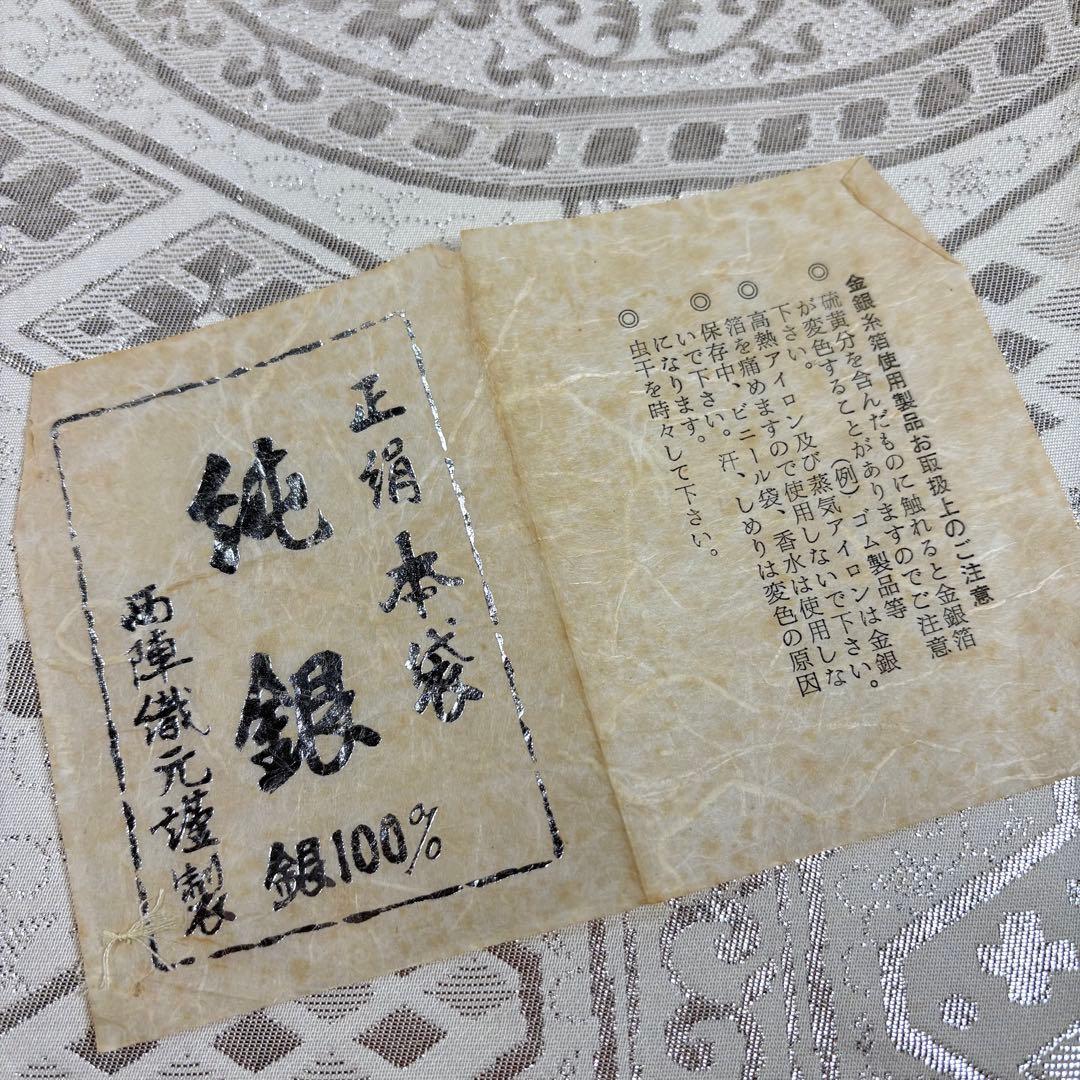 金銀糸箔使用製品お取扱上のご注意
◎硫黄分を含んだものに触れると金銀箔
が変色することがありますのでご注意
下さい。　（例）ゴム製品等
◎高熱アイロン及び蒸気アイロンは金銀
箔を痛めますので使用しないで下さい。
◎保存中、ビニール袋、香水は使用しな
いで下さい。汗、しめりは変色の原因
になります。
◎虫干を時々して下さい。
正絹本袋
純銀
銀100%
西陣織元謹製